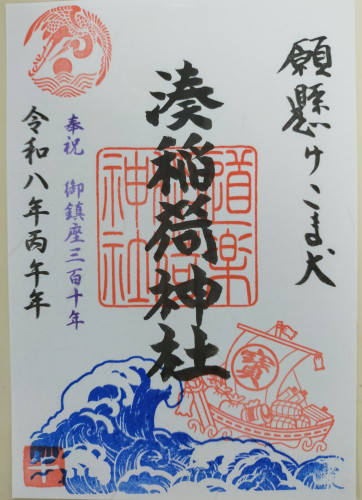 願懸けこま犬
湊稲荷神社
奉祝 御鎮座三百十年
令和八年丙午年
道楽
神社
寳